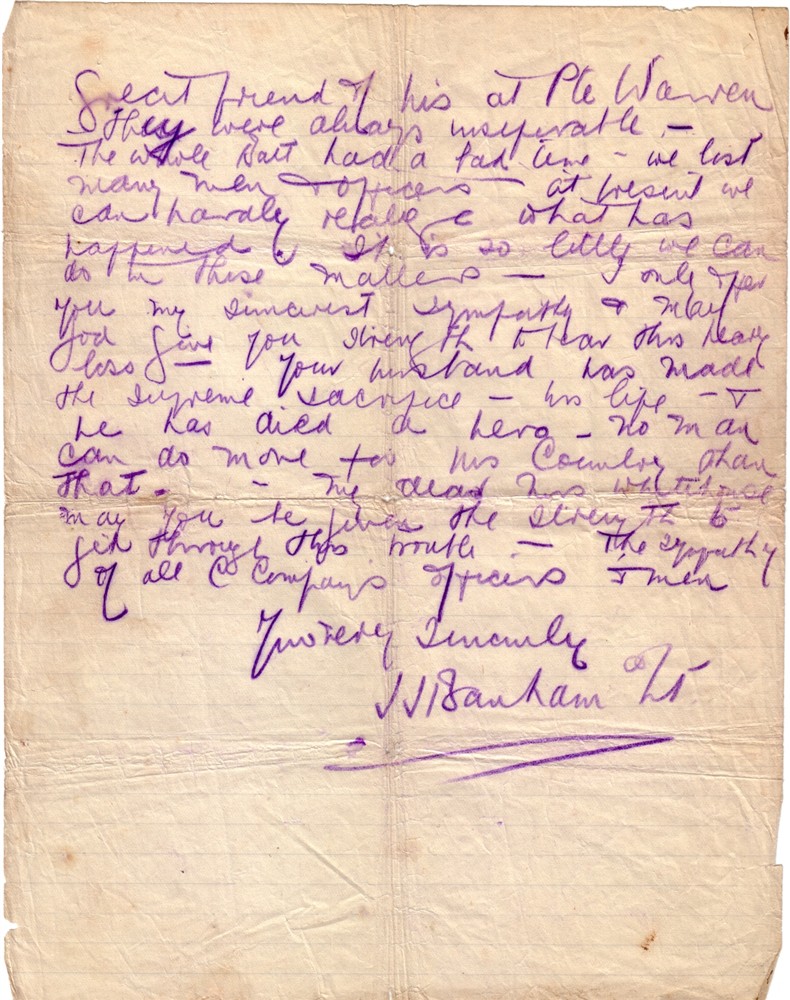 Great friend of his at Pte Warren
& they were always inseperable. —
The whole Batt had a bad time – we lost
many men & officers – at present we
can hardly realize what has
happened. It is so little we can
do in these matters – I only offer
you my sincerest sympathy & may
God give you strength to bear this heavy
loss — Your husband has made
the supreme sacrifice – his life – &
he has died a hero – no man
can do more for his Country than
that. – My dear Mrs Whitehouse
may you be given the strength to
get through this trouble — The sympathy
of all C Company's officers & men
Yours very sincerely
J J Banham Lt.